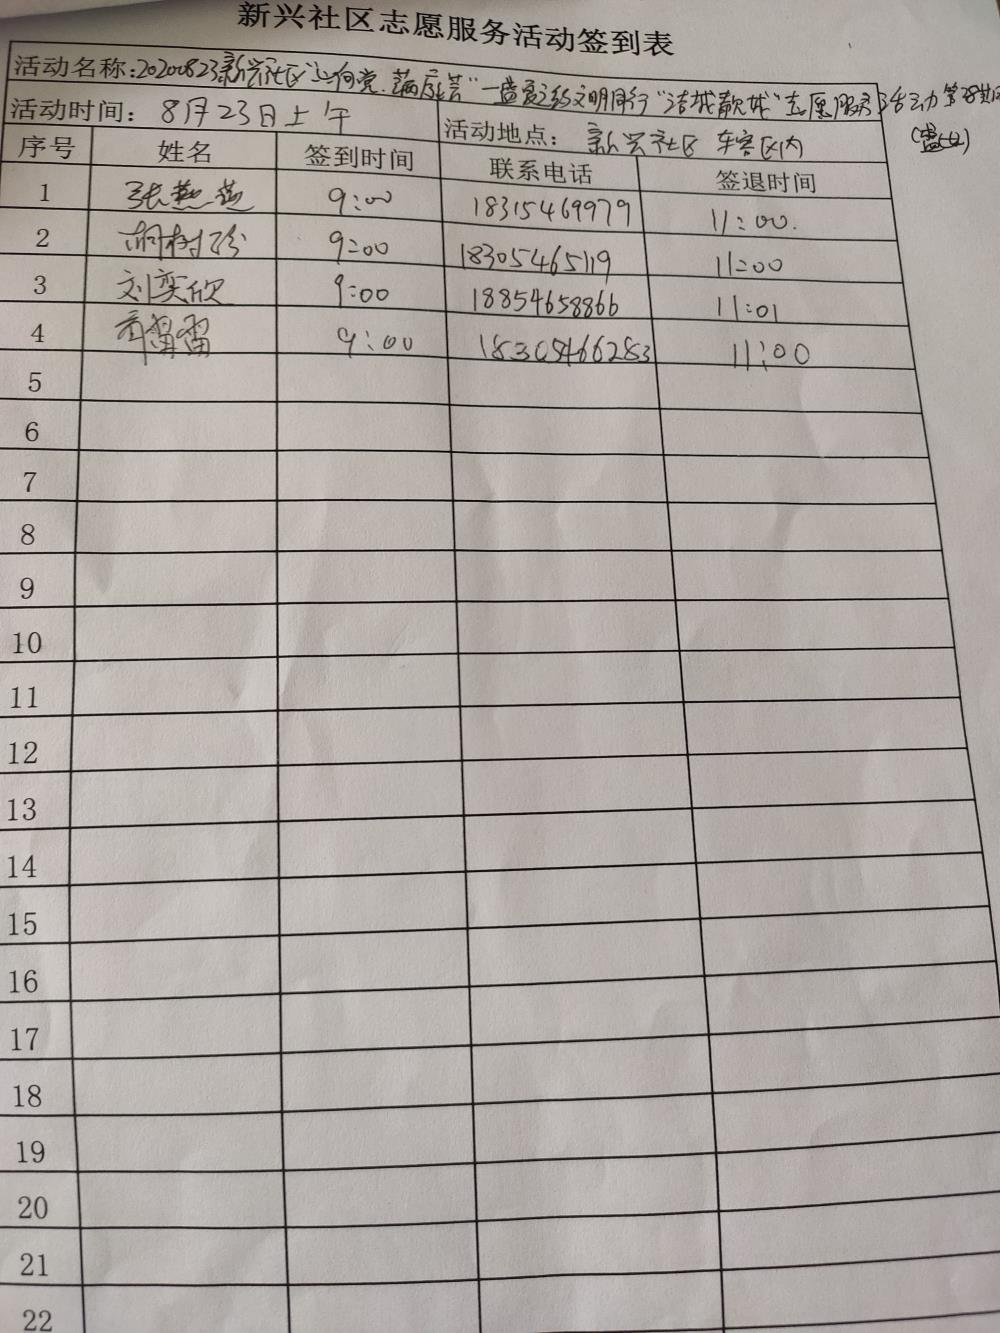 新兴社区志愿服务活动签到表
活动名称:20200823新兴社区"心向党 文明同行"洁城靓城"志愿服务活动
活动时间: 8月23日上午 活动地点: 新兴社区 辖区内
序号 姓名 签到时间 联系电话 签退时间
1 张燕燕 9:00 18315469979 11:00.
2 胡树珍 9:00 18305465119 11:00
3 刘奕欣 9:00 18854658866 11:01
4 雷雷 9:00 18305466283 11:00
5
6
7
8
9
10
11
12
13
14
15
16
17
18
19
20
21
22